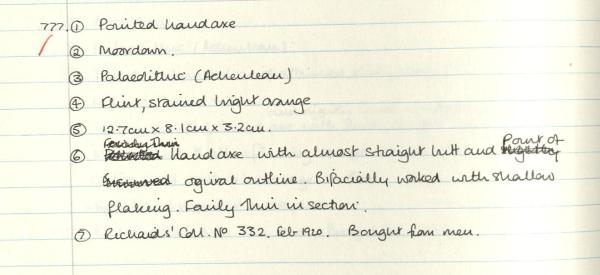 777. ① Pointed handaxe
② Moordown.
③ Palaeolithic (Acheulean)
④ Flint, stained bright orange
⑤ 12.7cm x 8.1cm x 3.2cm.
⑥ handaxe with almost straight butt and Point of
ogival outline. Bifacially worked with shallow
flaking. Fairly thin in section.
⑦ Richards' Coll. No 332. Feb 1920. Bought from men.